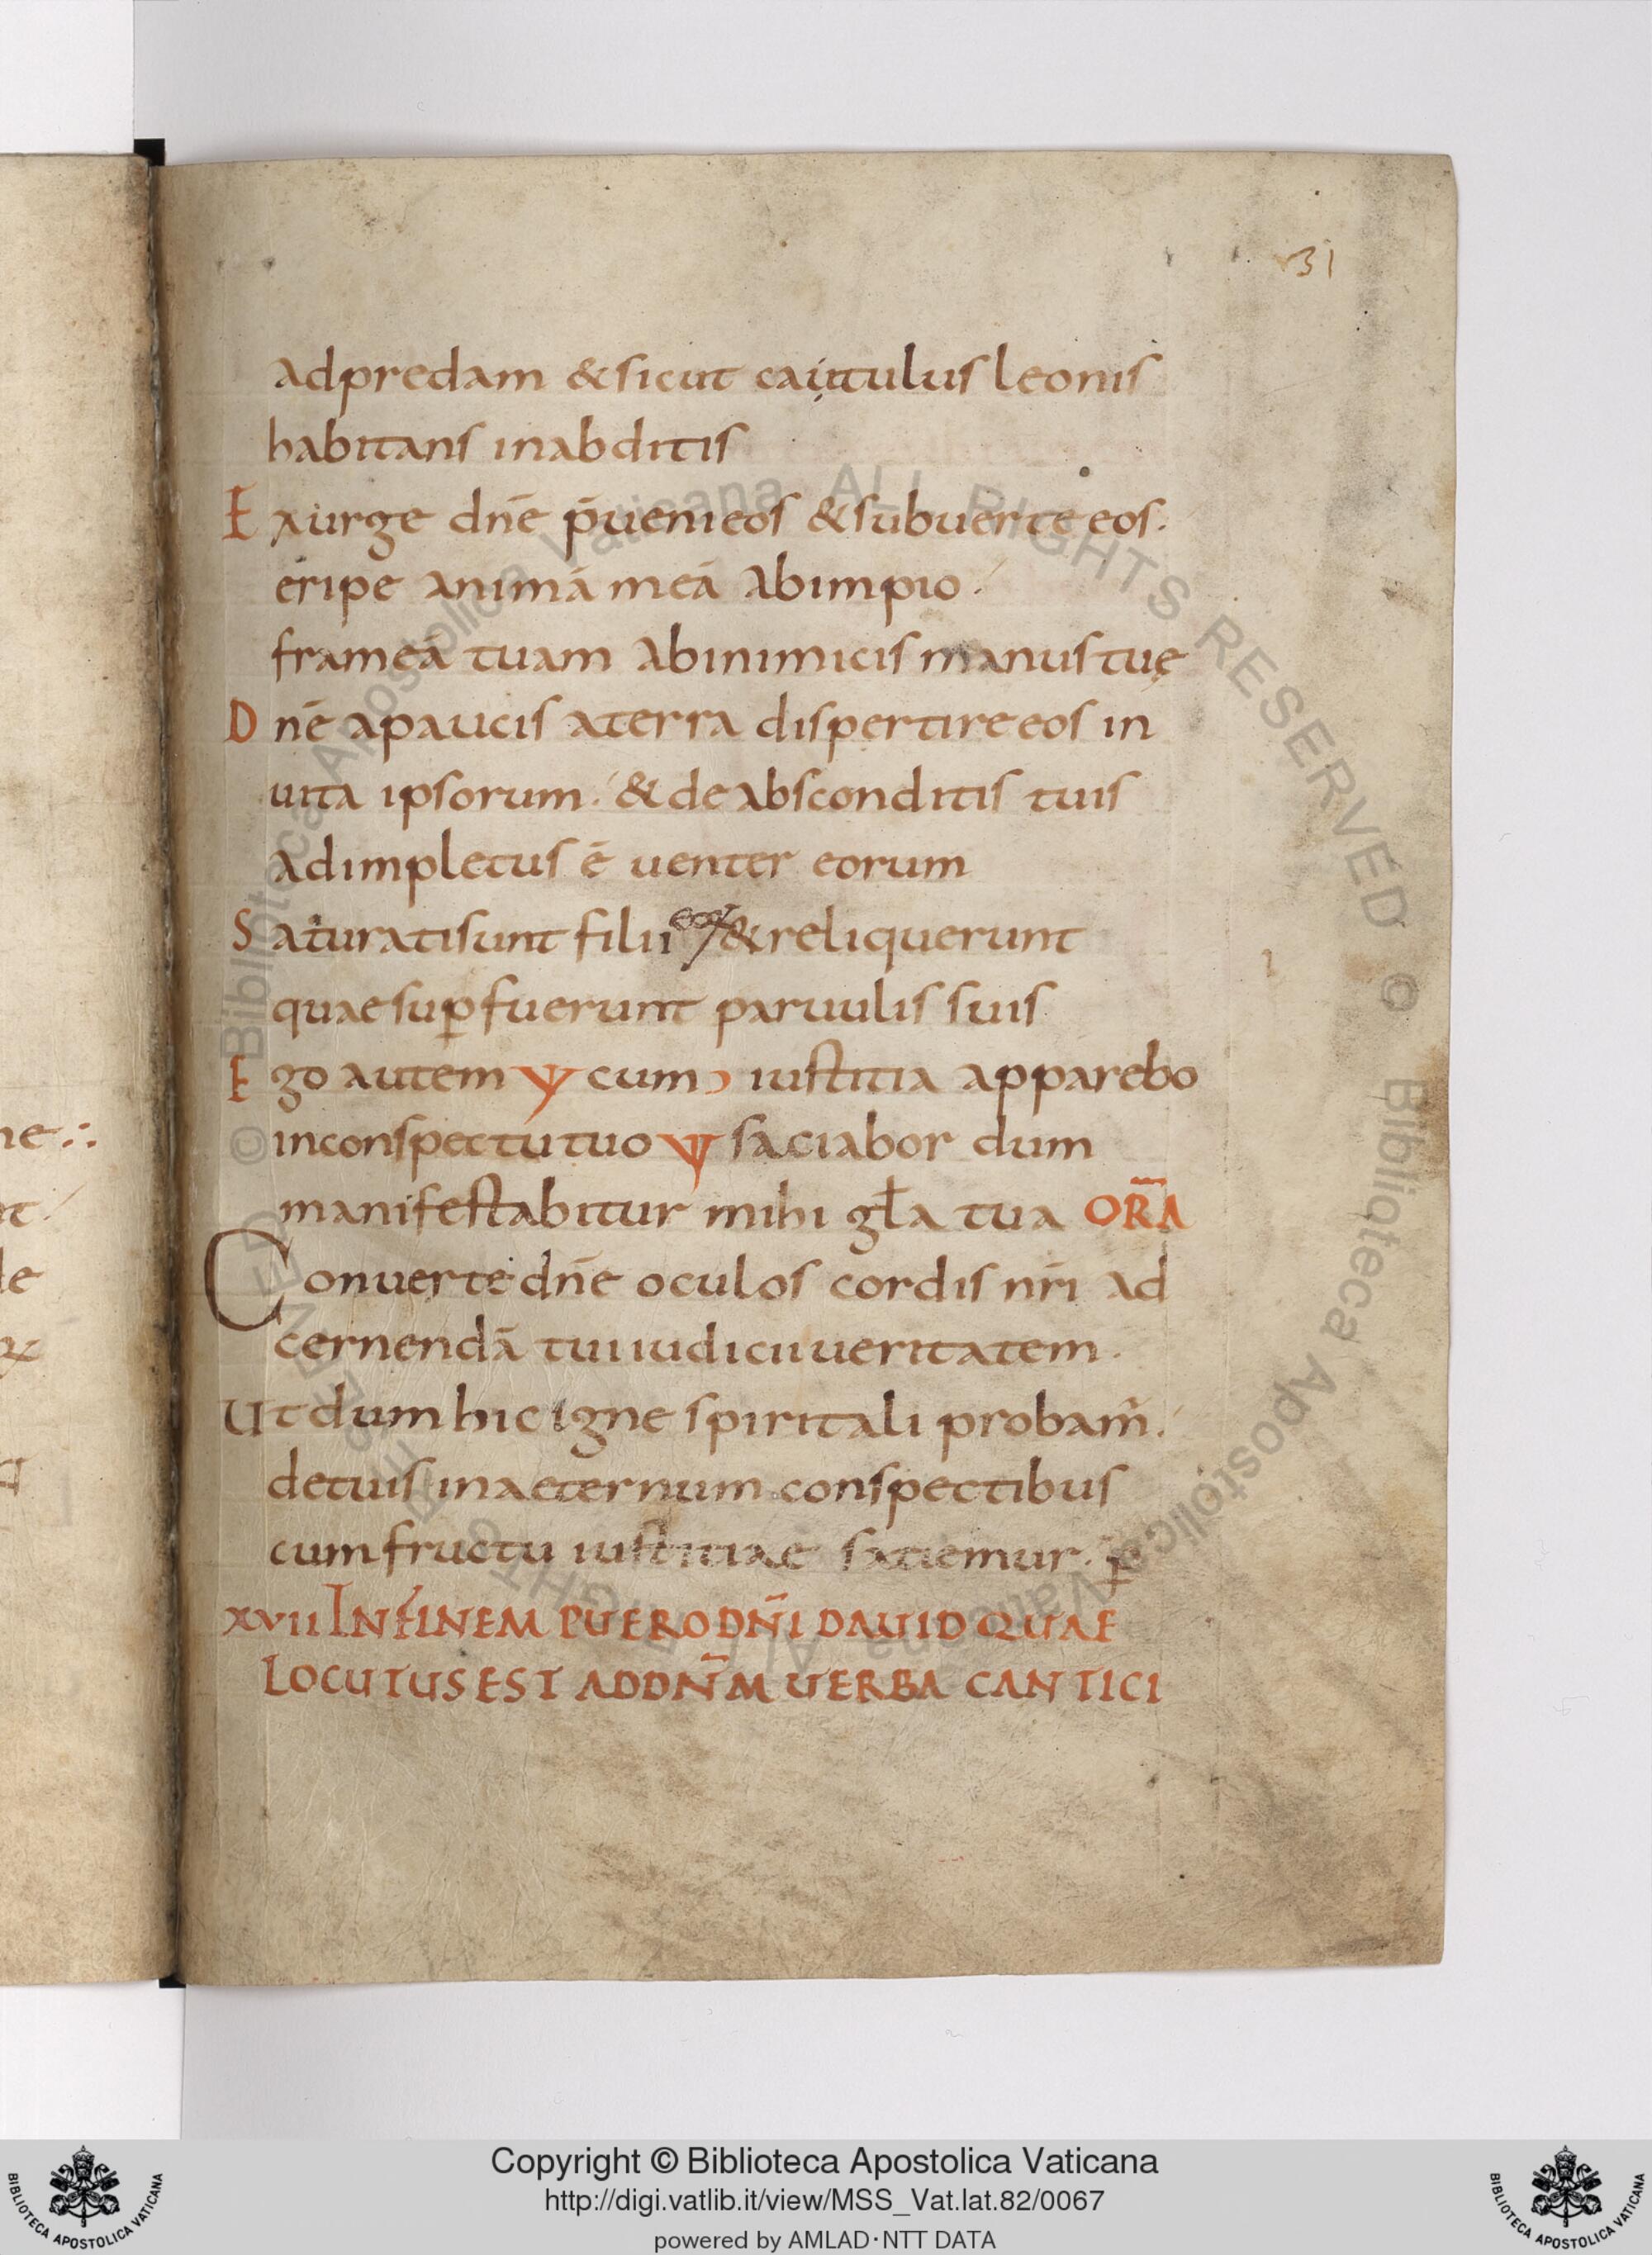 31
adpredam & sicut catulus leonis
habitans inabditis
Exurge dnē p̄uenieos & subuerte eos.
eripe animā meā abimpio.
frameā tuam abinimicis manus tuę
Dnē apaucis aterra dispertire eos in
uita ipsorum. & de absconditis tuis
adimpletus ē uenter eorum
Saturatisunt filii eoꝝ & reliquerunt
quae suꝑfuerunt paruulis suis
Ego autem cum iustitia apparebo
inconspectu tuo saciabor dum
manifestabitur mihi gła tua OR̄A
Conuerte dn̄e oculos cordis nr̄i ad
cernendā tui iudicii ueritatem.
Ut dum hic igne spiritali probam̄.
detuis inaeternum conspectibus
cum fructu iustitiae satiemur. p̄
XVII IN FINEM PUERO DN̄I DAUID QUAE
LOCUTUS EST AD DN̄M UERBA CANTICI
Copyright © Biblioteca Apostolica Vaticana
http://digi.vatlib.it/view/MSS_Vat.lat.82/0067
powered by AMLAD·NTT DATA
BIBLIOTECA APOSTOLICA VATICANA
BIBLIOTECA APOSTOLICA VATICANA